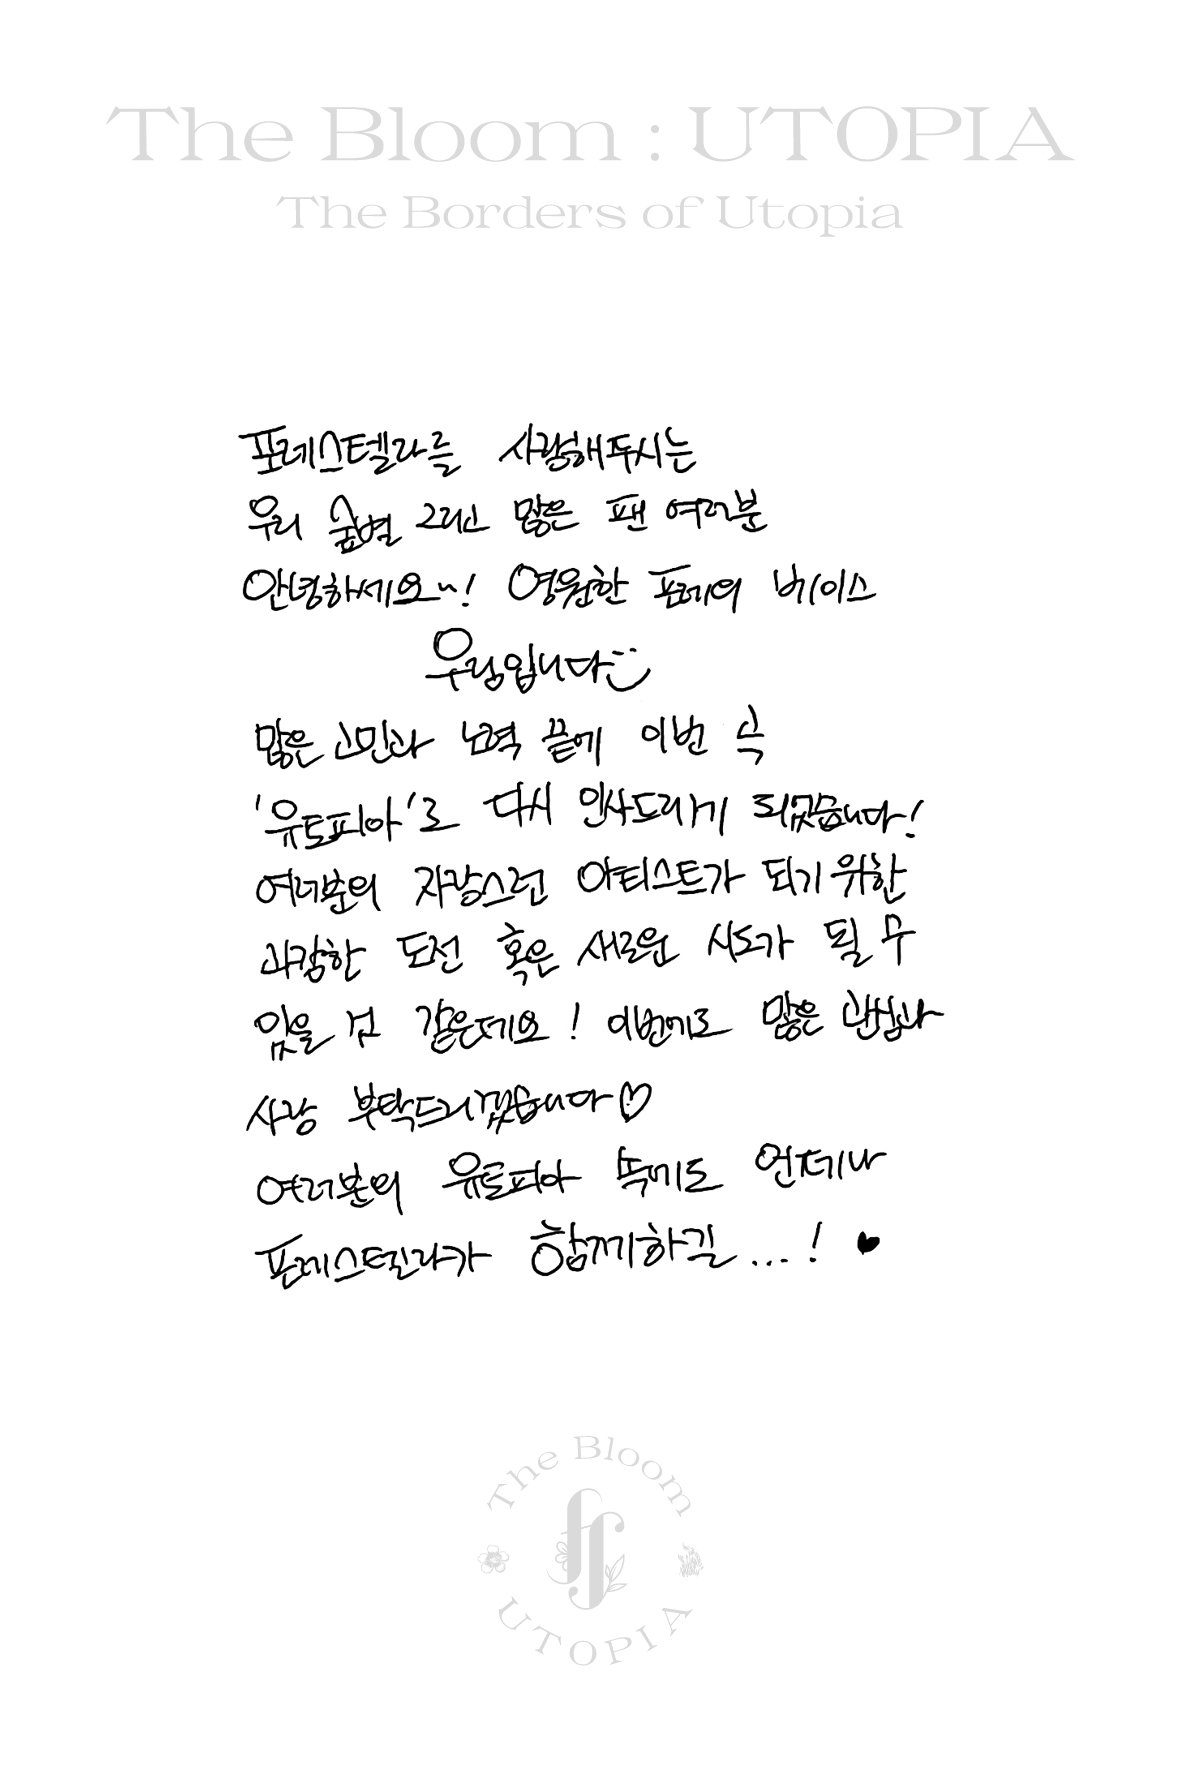 The Bloom : UTOPIA
The Borders of Utopia
포레스텔라를 사랑해주시는
우리 숲별 그리고 많은 팬 여러분
안녕하세요~! 영원한 포레의 베이스
우림입니다
많은 고민과 노력 끝에 이번 곡
'유토피아'로 다시 인사드리게 되었습니다!
여러분의 자랑스런 아티스트가 되기 위한
과감한 도전 혹은 새로운 시도가 될 수
있을 것 같은데요! 이번에도 많은 관심과
사랑 부탁드리겠습니다♡
여러분의 유토피아 속에도 언제나
포레스텔라가 함께하길...! ♥
The Bloom
UTOPIA